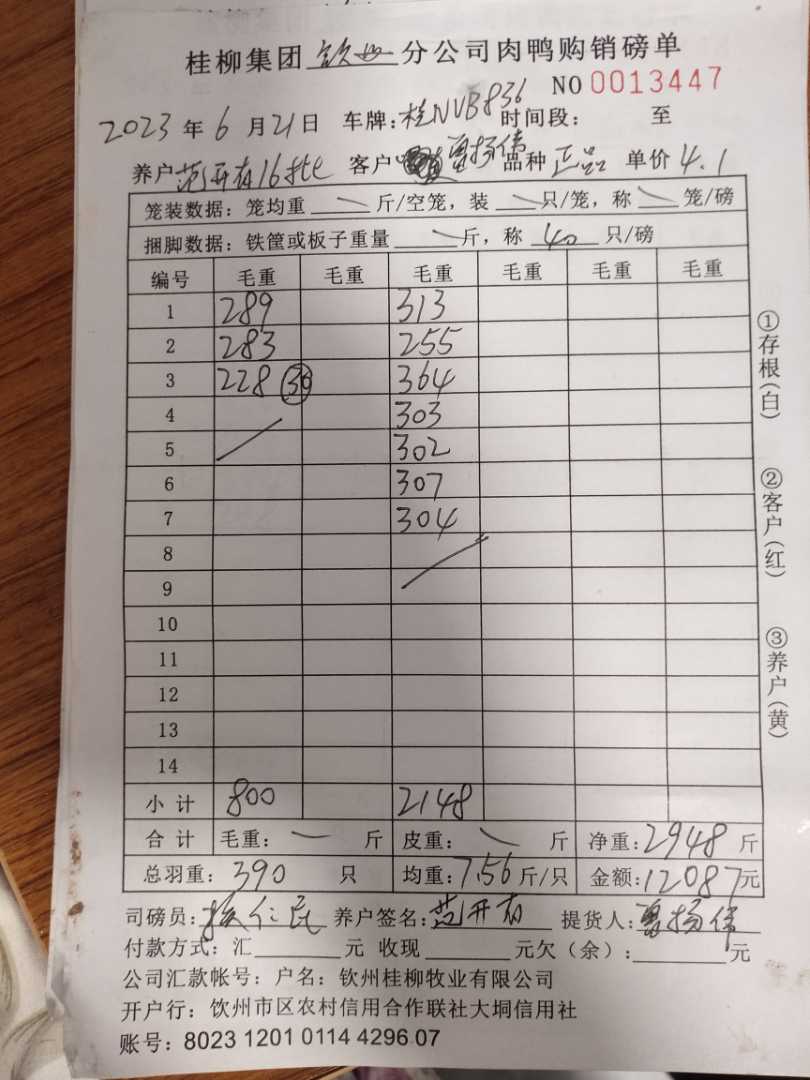 桂柳集团钦州分公司肉鸭购销磅单
NO 0013447
2023年6月21日 车牌:桂NVB836 时间段: 至
养户范开有16批 客户曾扬伟 品种正品 单价4.1
笼装数据:笼均重 一 斤/空笼,装 一 只/笼,称 一 笼/磅
捆脚数据:铁筐或板子重量 一 斤,称 40 只/磅
编号 毛重 毛重 毛重 毛重 毛重 毛重
1 289 313
2 283 255
3 228 30 364
4 303
5 302
6 307
7 304
8
9
10
11
12
13
14
小计 800 2148
合计 毛重: 一 斤 皮重: 一 斤 净重:2948斤
总羽重:390 只 均重:7.56斤/只 金额:12087元
司磅员: 仁民 养户签名:范开有 提货人:曾扬伟
付款方式:汇 元 收现 元欠(余): 元
公司汇款帐号:户名:钦州桂柳牧业有限公司
开户行:钦州市区农村信用合作联社大垌信用社
账号:8023 1201 0114 4296 07
①存根(白)
②客户(红)
③养户(黄)